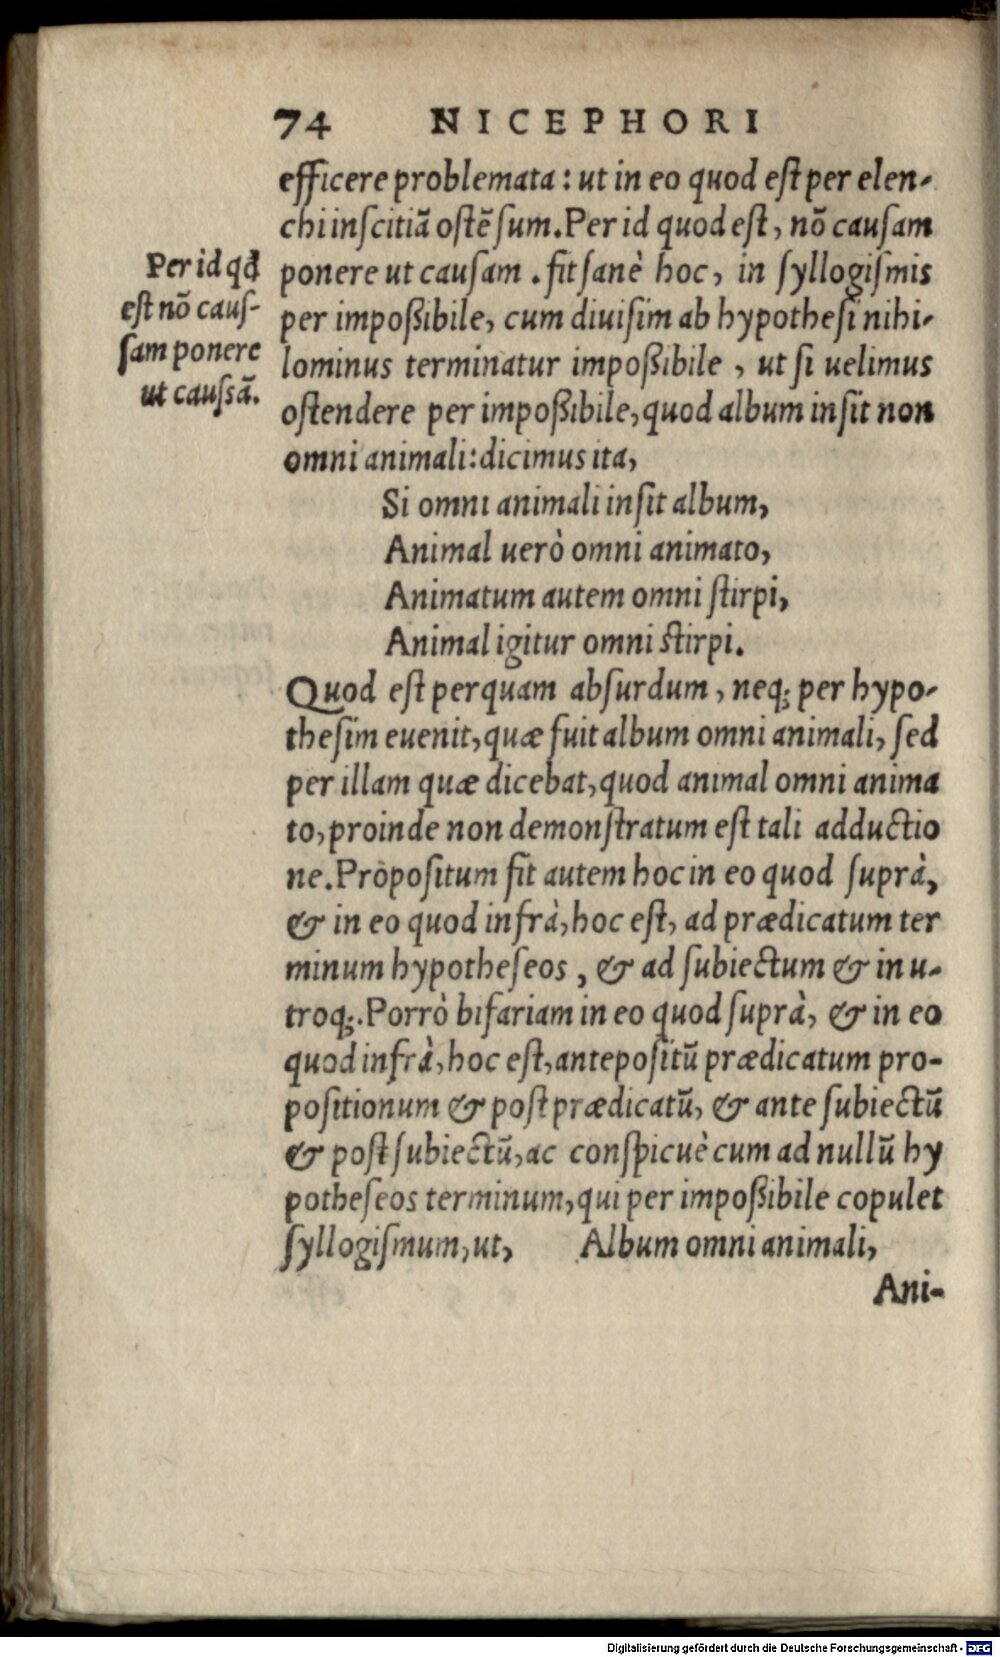 74 NICEPHORI
efficere problemata: ut in eo quod est per elen-
chi inscitiã ostẽsum. Per id quod est, nõ causam
ponere ut causam. fit sanè hoc, in syllogismis
per impoßibile, cum diuisim ab hypothesi nihi-
lominus terminatur impoßibile, ut si uelimus
ostendere per impoßibile, quod album insit non
omni animali: dicimus ita,
Per id qđ
est nõ caus-
sam ponere
ut caussã.
Si omni animali insit album,
Animal uerò omni animato,
Animatum autem omni stirpi,
Animal igitur omni stirpi.
Quod est perquam absurdum, neq; per hypo-
thesim euenit, quæ fuit album omni animali, sed
per illam quæ dicebat, quod animal omni anima
to, proinde non demonstratum est tali adductio
ne. Propositum fit autem hoc in eo quod suprà,
& in eo quod infrà, hoc est, ad prædicatum ter
minum hypotheseos, & ad subiectum & in u-
troq;. Porrò bifariam in eo quod suprà, & in eo
quod infrà, hoc est, antepositũ prædicatum pro-
positionum & post prædicatũ, & ante subiectũ
& post subiectũ, ac conspicuè cum ad nullũ hy
potheseos terminum, qui per impoßibile copulet
syllogismum, ut, Album omni animali,
Ani-
Digitalisierung gefördert durch die Deutsche Forschungsgemeinschaft - DFG